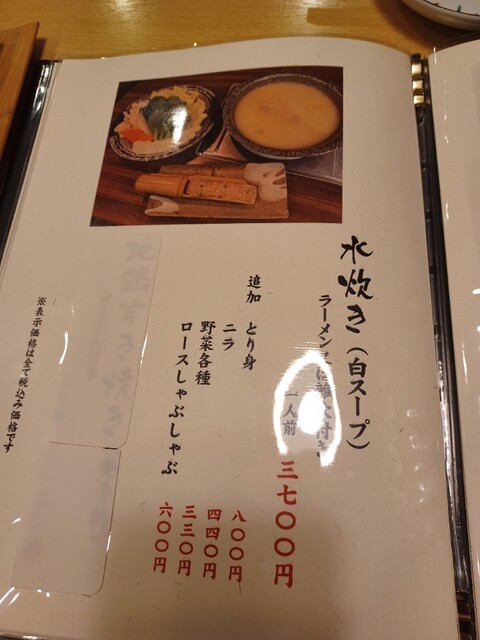 水炊き（白スープ）
ラーメン又は雑炊付き
一人前 三七〇〇円
追加 とり身 八〇〇円
ニラ 四四〇円
野菜各種 三三〇円
ロースしゃぶしゃぶ 六〇〇円
※表示価格は全て税込み価格です